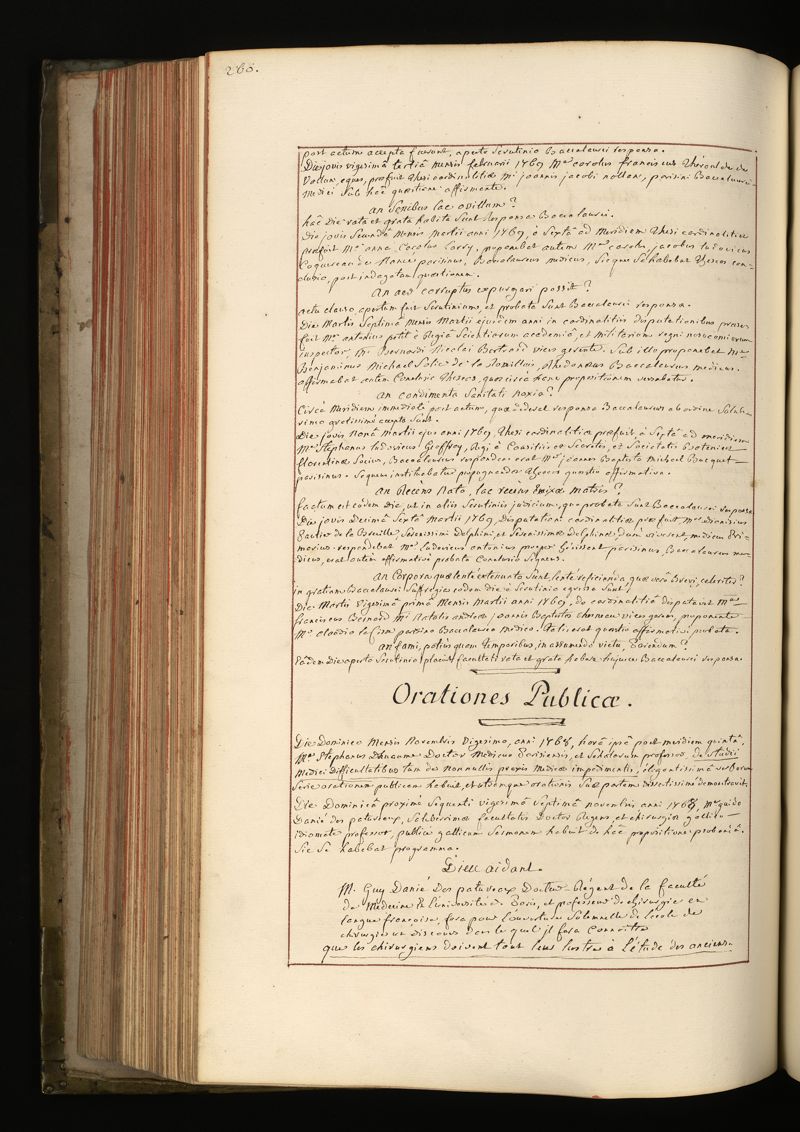 260.
post actum accepta fuerunt, aperto Scrutinio Baccalaurei responsa.
Die jovis vigesimâ tertiâ mensis februarii 1769 Mer carolus franciscus Theroulde de
Vallun, eques, præfuit Thesi cardinalitiæ Mi joannis jacobi nollan, parisini Baccalaurei
Medici Sub hâc quæstione affirmante.
an Senibus lac ovillum?
hâc Die rata et grata habita Sunt Responsa Baccalaurei.
Die jovis Secundâ Mensis Martii anni 1769, à Septa ad Meridiem Thesi cardinalitiæ
præfuit Mer anna carolus Lorry, propugnabat autem Mer carolus jacobus ludovicus
Coquereau parisinus, Baccalaureus medicus, Sicque Se habebat Theseos con-
clusio, post indagatam quæstionem.
an aer corruptus expurgari possit?
actu clauso, apertum fuit Scrutinium, et probata Sunt Baccalaurei responsa.
Die Martis Septimâ Mensis Martii ejusdem anni in cardinalitiis disputationibus præses
fuit Mer antonius petit è Regiâ Scientiarum academiâ, et militarium regni nosocomiorum
inspector, Mi Bernardi Nicolai Bertrand vices gerente. Sub illo proponebat Mer
Benjaminus Michael Solier de la Romillais, Rhedonæus Baccalaureus medicus.
affirmabat autem Conclusio Theseos, quæ circà hanc propositionem versabatur.
an condimenta Sanitati noxia?
Circà Meridiem immediatè post actum, quæ dederat responsa Baccalaureus ab ordine Saluber-
rimo gratissimè accepta Sunt.
Die jovis Nonâ Martii ejus anni 1769 Thesi cardinalitiæ præfuit à Septâ ad meridiem
Mer Stephanus ludovicus Geoffroy, Regi à Consiliis et Secretis, et Societatis Botanicæ
florentinæ Socius, Baccalaureus respondens erat Mer joannes Baptista Michael Bacquet
parisinus. Sequens instituebatur propugnandæ Theseos quæstio affirmativa.
an Recèns Nato, lac recens Enixæ Matris?
factum est eodem Die, ut in aliis Scrutiniis judicium, quo probata Sunt Baccalaurei responsa
Die jovis Decimâ Sextâ Martii 1769, Disputationi cardinalitiæ præfuit Mer Dionisius
Serenissimi Delphini, et Serenissimæ Delphinæ, dum viverent, medicus Pri-
marius. respondebat Mer ludovicus antonius prosper Hérissant parisinus, Baccalaureus me-
dicus, erat autem affirmativè probata Conclusio Sequens.
an Corpora quæ lentè extenuata Sunt, lentè reficienda, quæ verò brevi, celeriter?
in gratiam Baccalaurei Suffragia eodem die è Scrutinio egressa Sunt,
Die Martis Vigesimâ primâ Mensis Martii anni 1769, de cardinalitiâ disputavit Mer
franciscus Bernard Mi Natalis andreæ joannis Baptistæ chesneau vices gerens, propugnante
Mo claudio la Caze parisino Baccalaureo medico. Talis erat quæstio affirmativè probata.
an fami, potius quam temporibus, in assumendo victu, Pariendum?
Eâdem Die aperto Scrutinio placuit facultati rata et grata habere hujusce Baccalaurei responsa.
Orationes Publicæ.
Die Dominicâ Mensis Novembris vigesimâ, anni 1768, horâ ipsâ post meridiem quintâ,
Mer Stephanus Doctor Medicus Parisiensis, et Scholarum professor, de Studii
Medici Difficultatibus tum de nonnullis praxis Medicæ impedimentis, elegantissimâ verborum
Serie orationem publicam habuit, et utramque orationis Suæ partem disertissimè demonstravit.
Die Dominicâ proximè Sequenti vigesimâ Septimâ novembris anni 1768, Mer guido
Danié des patureaux, Saluberrimæ facultatis Doctor Regens, et chirurgiæ gallico
idiomate professor, publicè gallicum Sermonem habuit de hâc propositione probandâ.
Sic Se habebat programma.
Dieu aidant.
M. Guy Danié Des patureaux Docteur-Régent de la faculté
de Médecine en L'université de Paris, et professeur de chirurgie en
langue françoise, fera pour L'ouverture Solemnelle de L'école de
chirurgie un Discours dans le quel jl fera Connoître
que les chirurgiens doivent tout leur lustre à L'étude des anciens.